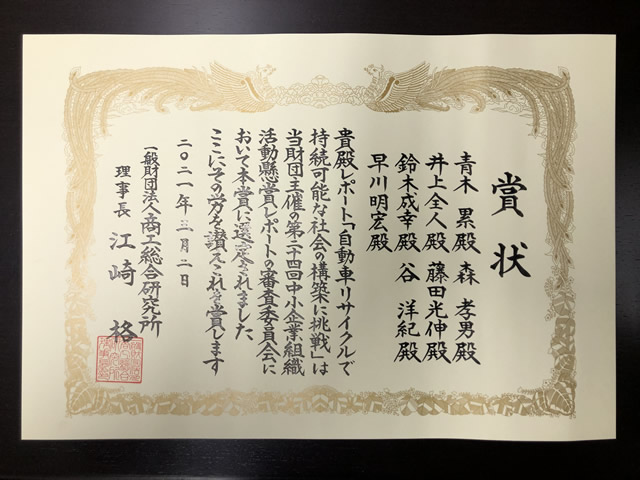 賞状
青木 累殿 森 孝男殿
井上全人殿 藤田光伸殿
鈴木成幸殿 谷 洋紀殿
早川明宏殿
貴殿レポート「自動車リサイクルで
持続可能な社会の構築に挑戦」は
当財団主催の第二十四回中小企業組織
活動懸賞レポートの審査委員会に
おいて本賞に選定されました
ここにその労を讃えこれを賞します
二〇二一年三月二日
一般財団法人商工総合研究所
理事長 江崎 格